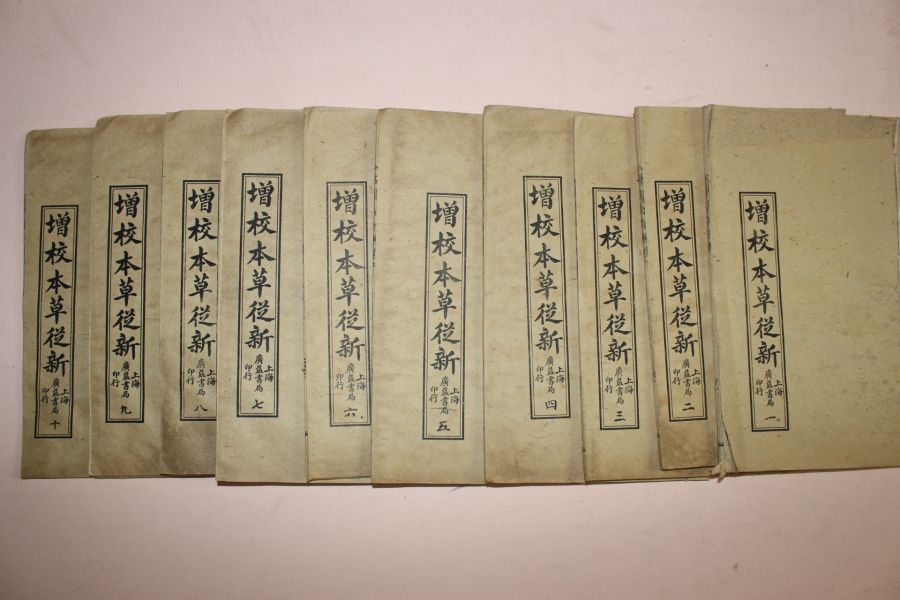 增校本草從新 上海廣益書局印行 一
增校本草從新 上海廣益書局印行 二
增校本草從新 上海廣益書局印行 三
增校本草從新 上海廣益書局印行 四
增校本草從新 上海廣益書局印行 五
增校本草從新 上海廣益書局印行 六
增校本草從新 上海廣益書局印行 七
增校本草從新 上海廣益書局印行 八
增校本草從新 上海廣益書局印行 九
增校本草從新 上海廣益書局印行 十